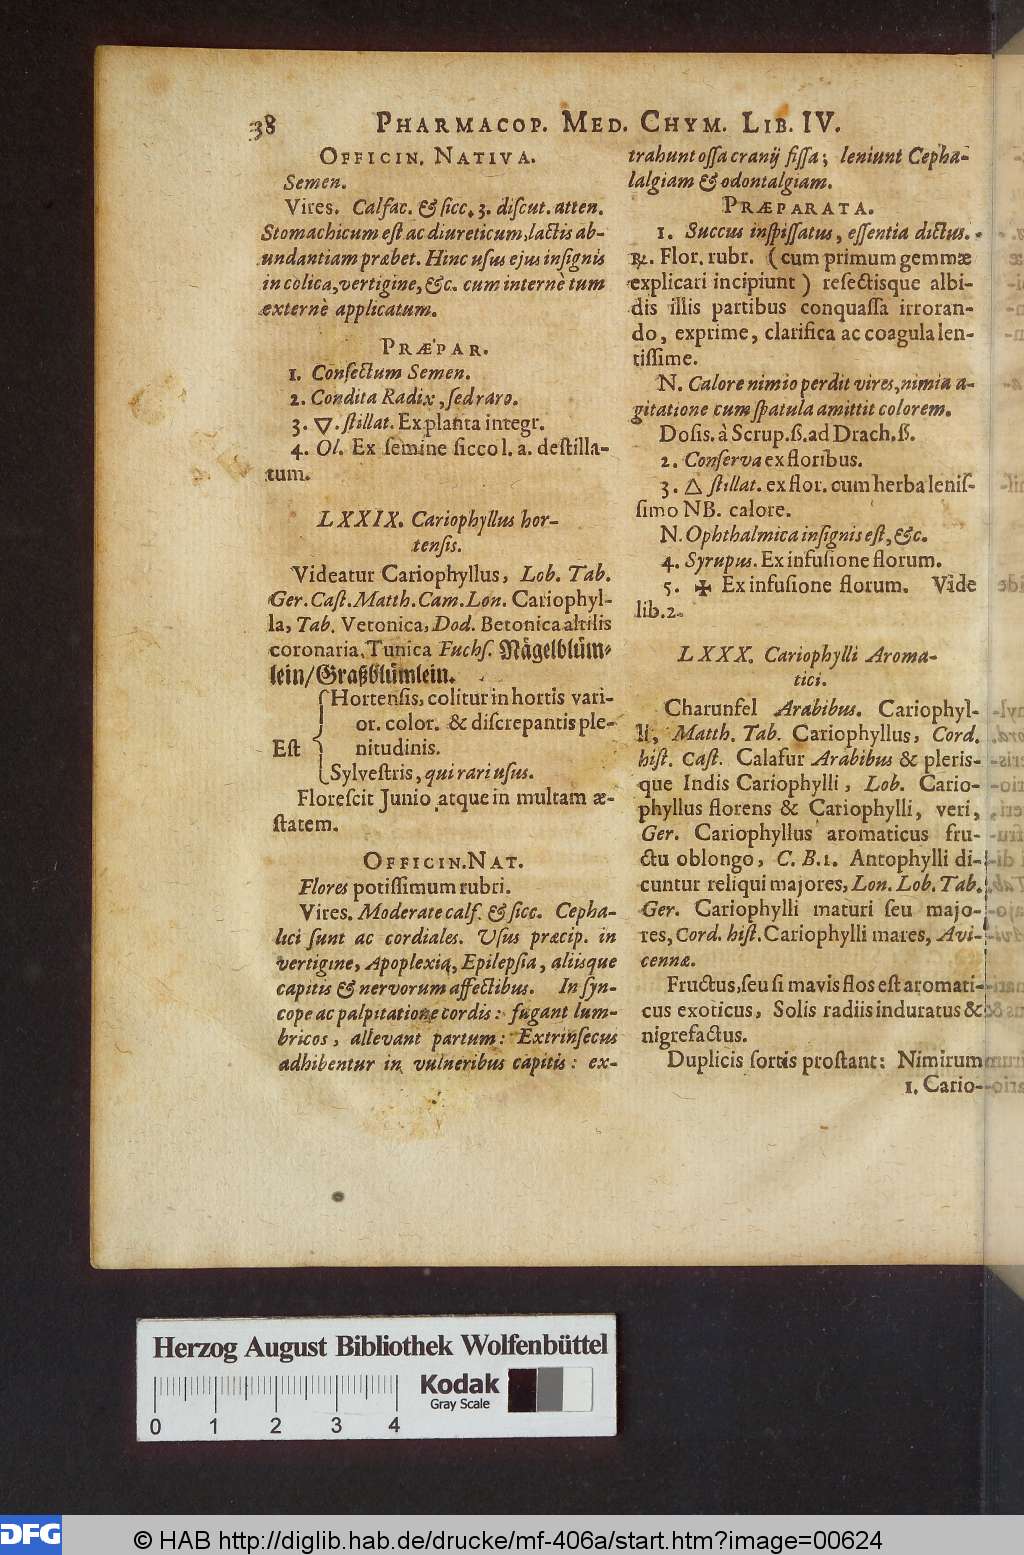 38 PHARMACOP. MED. CHYM. LIB. IV.
OFFICIN. NATIVA.
Semen.
Vires. Calfac. & ſicc. 3. diſcut. atten.
Stomachicum eſt ac diureticum, lactis ab-
undantiam præbet. Hinc uſus ejus inſignis
in colica, vertigine, &c. cum internè tum
externè applicatum.
PRÆPAR.
1. Confectum Semen.
2. Condita Radix, ſed raro.
3. 🜄. ſtillat. Ex planta integr.
4. Ol. Ex ſemine ſicco l. a. deſtilla-
tum.
LXXIX. Cariophyllus hor-
tenſis.
Videatur Cariophyllus, Lob. Tab.
Ger. Caſt. Matth. Cam. Lon. Cariophyl-
la, Tab. Vetonica, Dod. Betonica altilis
coronaria, Tunica Fuchſ. Nägelblüm-
lein/Graßblümlein.
Hortenſis, colitur in hortis vari-
or. color. & diſcrepantis ple-
Eſt nitudinis.
Sylveſtris, qui rari uſus.
Floreſcit Junio atque in multam æ-
ſtatem.
OFFICIN. NAT.
Flores potiſſimum rubri.
Vires. Moderate calf. & ſicc. Cepha-
lici ſunt ac cordiales. Uſus præcip. in
vertigine, Apoplexia, Epilepſia, aliisque
capitis & nervorum affectibus. In ſyn-
cope ac palpitatione cordis: fugant lum-
bricos, allevant partum: Extrinſecus
adhibentur in vulneribus capitis: ex-
trahunt oſſa cranij fiſſa; leniunt Cepha-
lalgiam & odontalgiam.
PRÆPARATA.
1. Succus inſpiſſatus, eſſentia dictus.
℞. Flor. rubr. (cum primum gemmæ
explicari incipiunt) reſectisque albi-
dis illis partibus conquaſſa irroran-
do, exprime, clarifica ac coagula len-
tiſſime.
N. Calore nimio perdit vires, nimia a-
gitatione cum ſpatula amittit colorem.
Doſis. à Scrup. ß. ad Drach. ß.
2. Conſerva ex floribus.
3. 🜂 ſtillat. ex flor. cum herba leniſ-
ſimo NB. calore.
N. Ophthalmica inſignis eſt, &c.
4. Syrupus. Ex infuſione florum.
5. ✠ Ex infuſione florum. Vide
lib. 2.
LXXX. Cariophylli Aroma-
tici.
Charunfel Arabibus. Cariophyl-
li, Matth. Tab. Cariophyllus, Cord.
hiſt. Caſt. Calafur Arabibus & pleris-
que Indis Cariophylli, Lob. Cario-
phyllus florens & Cariophylli, veri,
Ger. Cariophyllus aromaticus fru-
ctu oblongo, C. B. 1. Antophylli di-
cuntur reliqui majores, Lon. Lob. Tab.
Ger. Cariophylli maturi ſeu majo-
res, Cord. hiſt. Cariophylli mares, Avi-
cennæ.
Fructus, ſeu ſi mavis flos eſt aromati-
cus exoticus, Solis radiis induratus &
nigrefactus.
Duplicis ſortis proſtant: Nimirum
1. Cario-
Herzog August Bibliothek Wolfenbüttel
Kodak
Gray Scale
0 1 2 3 4
DFG
© HAB http://diglib.hab.de/drucke/mf-406a/start.htm?image=00624